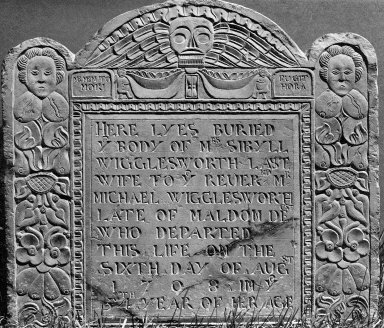 MEMENTO FUGIT
MORI HORA
HERE LYES BURIED
Yᵉ BODY OF Mʳˢ SIBYLL
WIGGLESWORTH LAST
WIFE TO Yᵉ REUERᴺᴰ Mʳ
MICHAEL WIGGLESWORTH
LATE OF MALDOM Dᴱᶜ
WHO DEPARTED
THIS LIFE ON THE
SIXTH DAY OF AUGˢᵀ
1708 IN Yᵉ
YEAR OF HER AGE